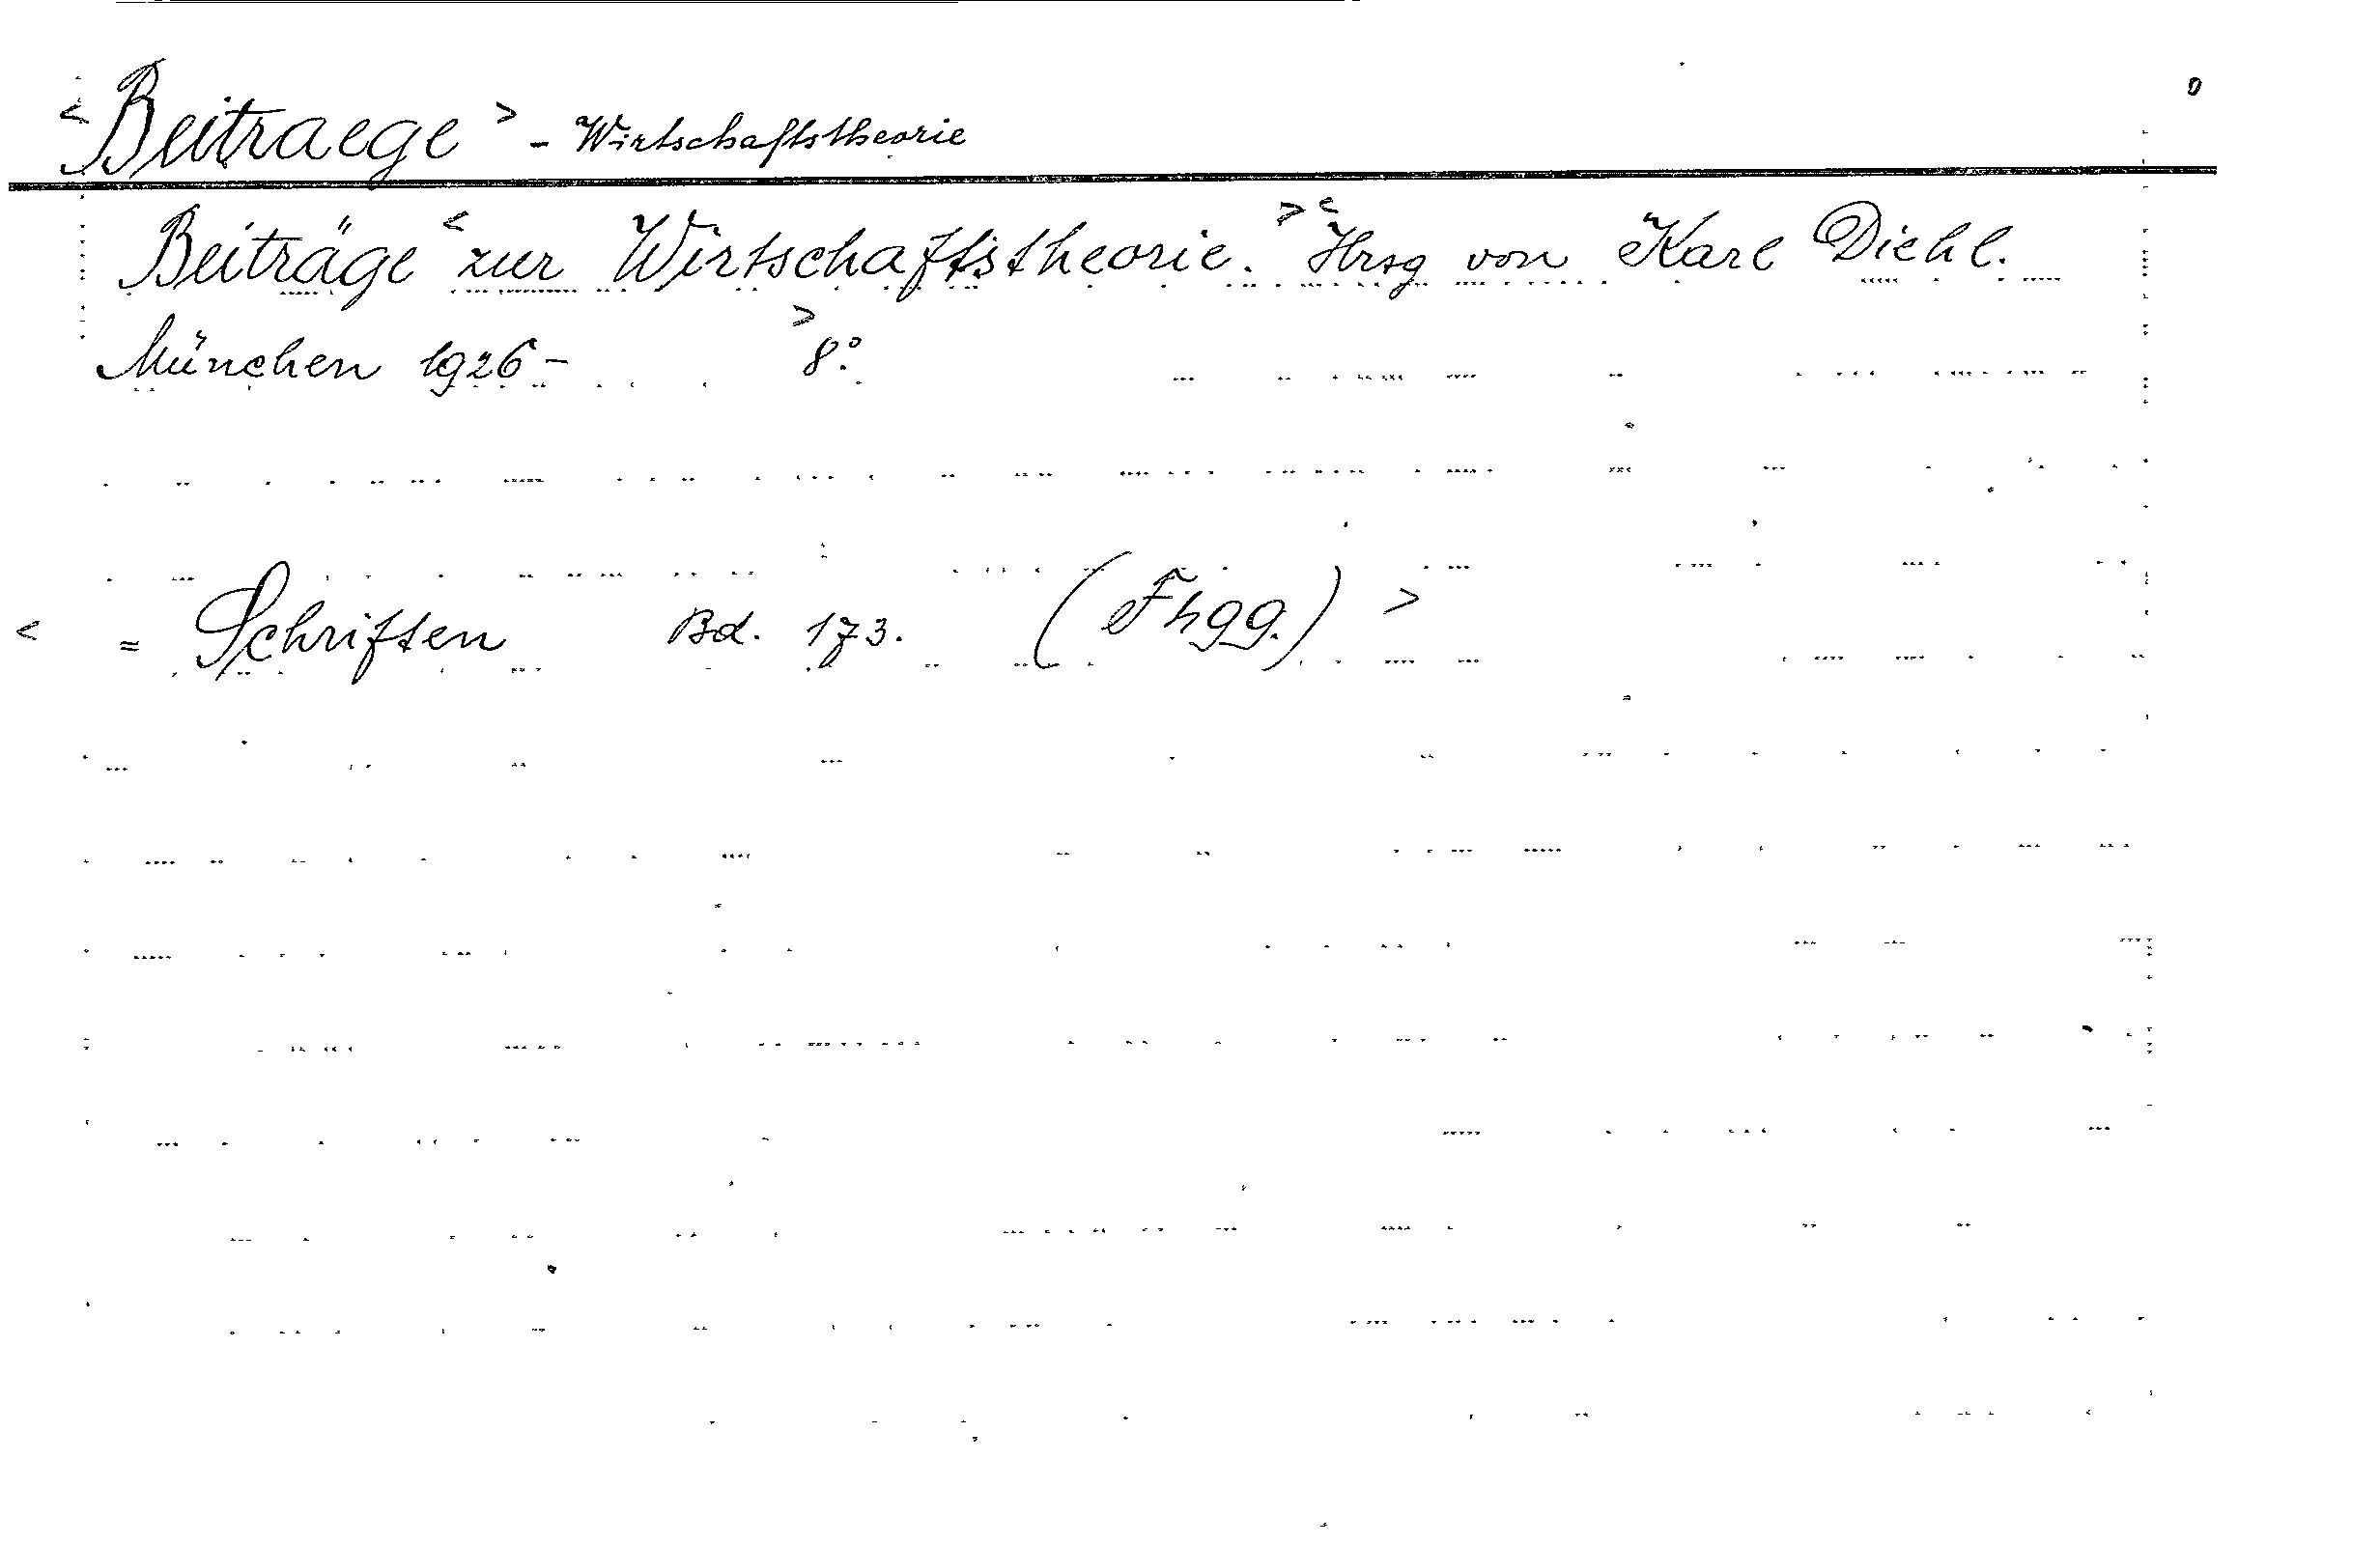 <Beitraege> - Wirtschaftstheorie
Beiträge <zur Wirtschaftstheorie.> <Hrsg von Karl Diehl.
München 1926- >8°.
< = Schriften Bd. 173. (Fhgg.) >